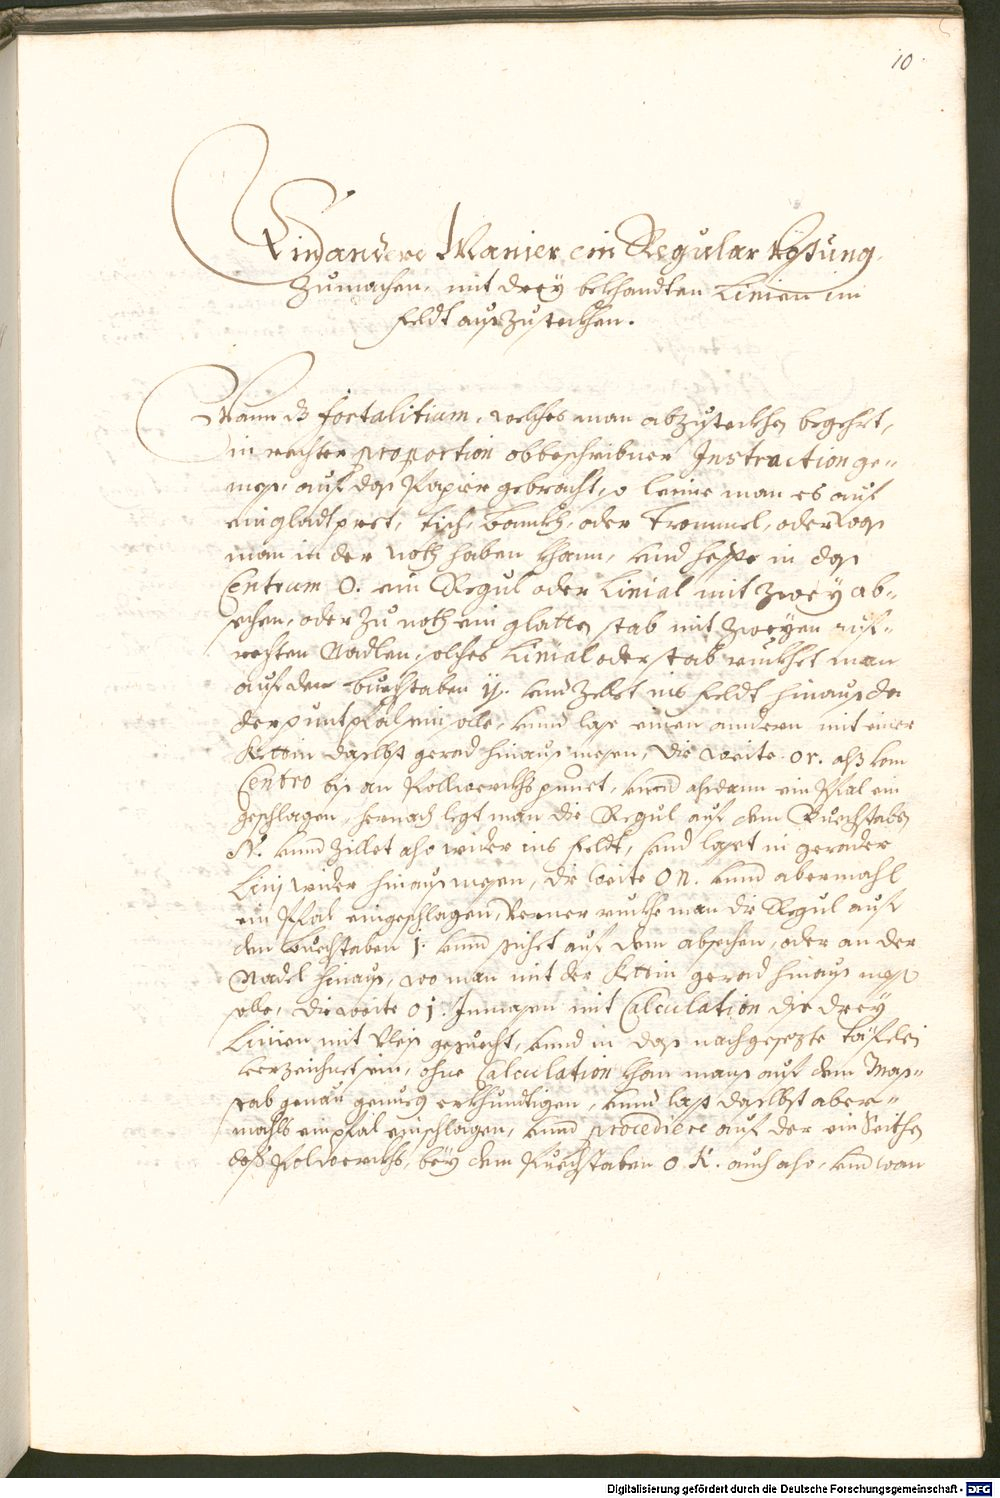 10
Ein andere Manier ein Regular Vöstung
Zumachen, mit drey bekhandten Linien im
Feldt auszusteckhen.
Wann dz fortalitium, welches man abzusteckhen begehrt,
in rechter proportion obbeschribner Instruction ge-
mess, auf das Papier gebracht, so leime man es auf
ein gladt pret, Tisch, Banckh, oder Trommel, oder was
man in der noth haben khann, und heffte in das
Centrum O. ein Regul oder Linial mit zwey ab-
sechen, oder zu noth ein glatten stab mit zweyen auf-
rechten Nadlen, solches Linial oder stab ruckhet man
auf den Buechstaben y. und zillet ins Feldt hinaus da
der punt pfal sein solle, unnd lass einen andern mit einer
Kettin daselbst gerad hinaus mesen, die weite or. alss vom
Centro bis an Pollwerckhs punct, unnd alsdann ein Pfal ein
geschlagen, hernach legt man die Regul auf dem Buechstaben
N. unnd zillet also wider ins Feldt, und lasset in gerader
Linj wider hinaus mesen, die weite O n. unnd abermahl
ein Pfal eingeschlagen, Ferner ruckhe man die Regul auf
den Buechstaben j. unnd sichet auf dem absechen, oder an der
Nadel hinaus, wo man mit der Kettin gerad hinaus mess
solle, die weite O j. Inmasen mit Calculation dise drey
Linien mit vleis gesuecht, unnd in das nachgesezte täfelein
verzeichnet sein, ohne Calculation khan mans auf dem Mas-
stab genau genueg erkhundtigen, unnd lass daselbst aber-
mahls ein pfal einschlagen, unnd procediere auf der ein Seithen
dess Polwerckhs, bey dem Buechstaben O K. auch also, und wan
Digitalisierung gefördert durch die Deutsche Forschungsgemeinschaft - DFG